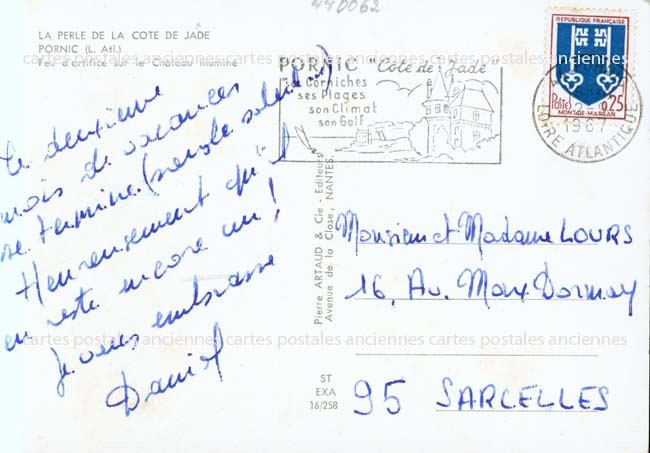 440062
LA PERLE DE LA COTE DE JADE
PORNIC (L. Atl.)
Feu d'artifice sur le Château illuminé
cartes postales anciennes cartes postales anciennes cartes postales anciennes
PORNIC "Côte de Jade"
ses Corniches
ses Plages
son Climat
son Golf
REPUBLIQUE FRANÇAISE
Postes 0,25
MONT-DE-MARSAN
1967
LOIRE ATLANTIQUE
Le deuxième
mois de vacances
se termine (sous le soleil)
Heureusement qu'il
en reste encore un!
Je vous embrasse
Daniel
Pierre ARTAUD & Cie - Editeurs
Avenue de la Close, NANTES
Monsieur et Madame LOURS
16, Av. Marx Dormoy
95 SARCELLES
cartes postales anciennes cartes postales anciennes cartes postales anciennes
ST
EXA
16/258